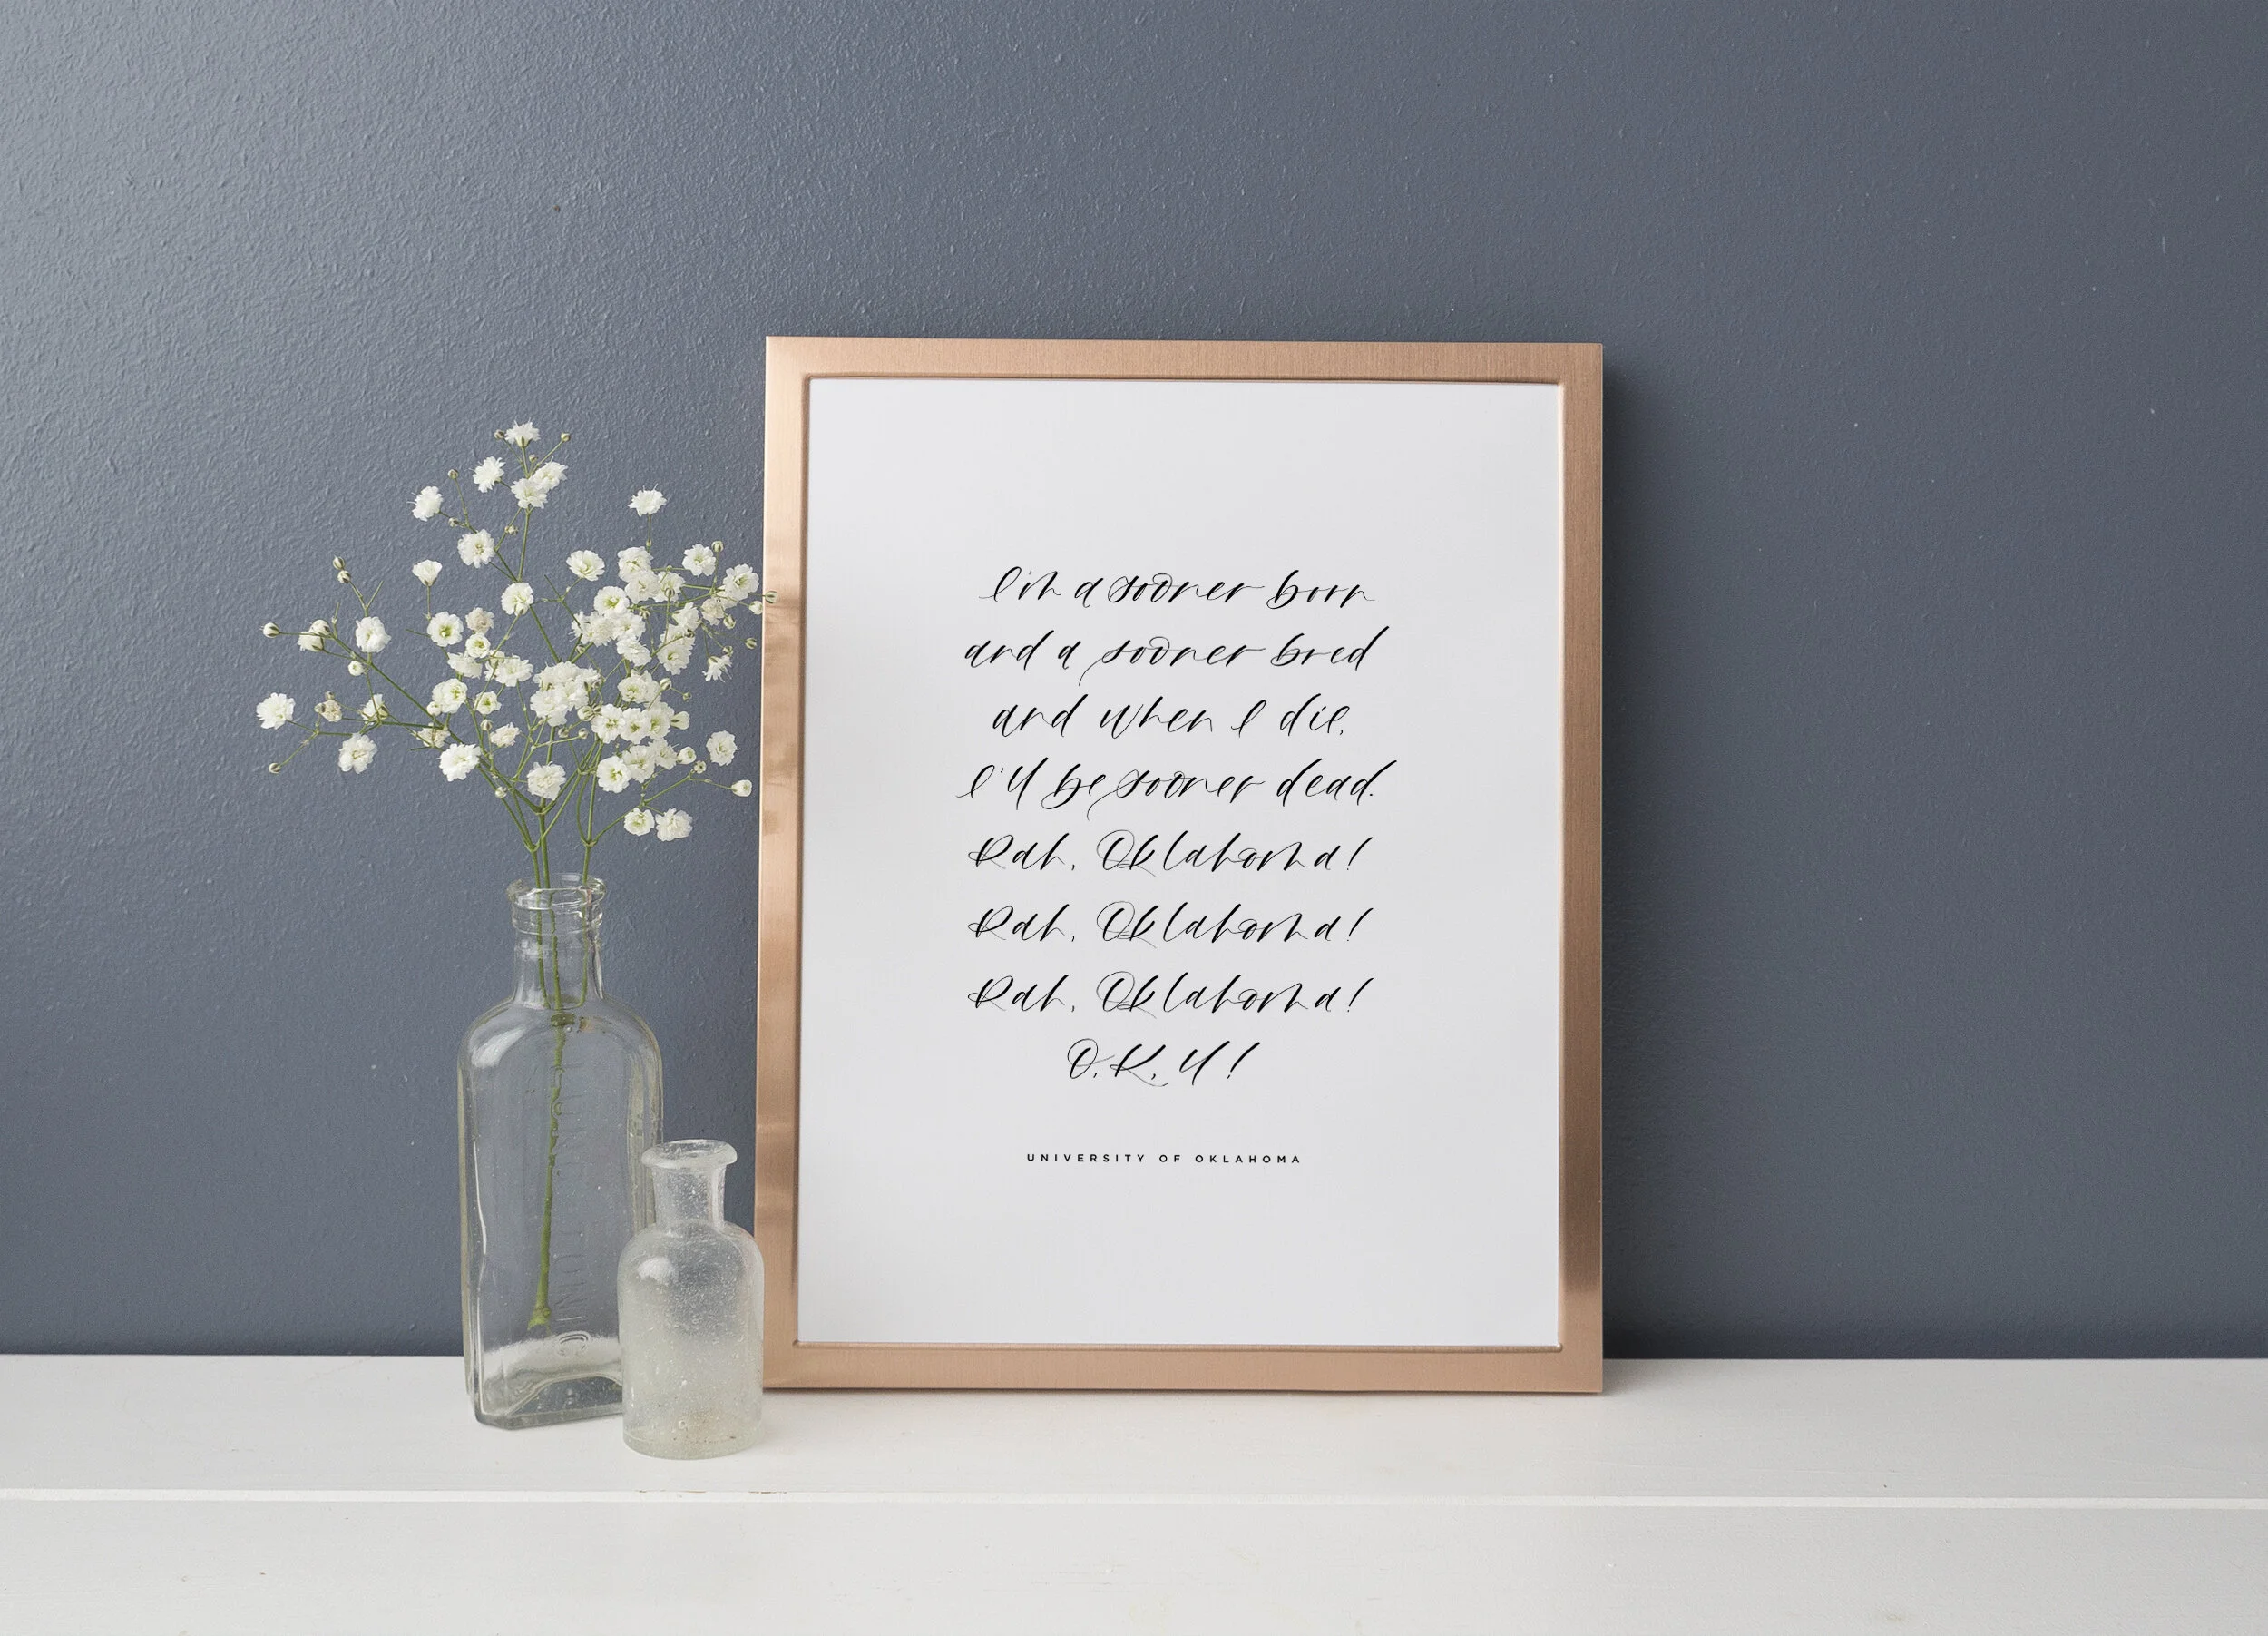 I'm a sooner born
and a sooner bred
and when I die,
I'll be sooner dead.
Rah, Oklahoma!
Rah, Oklahoma!
Rah, Oklahoma!
O, K, U!
UNIVERSITY OF OKLAHOMA